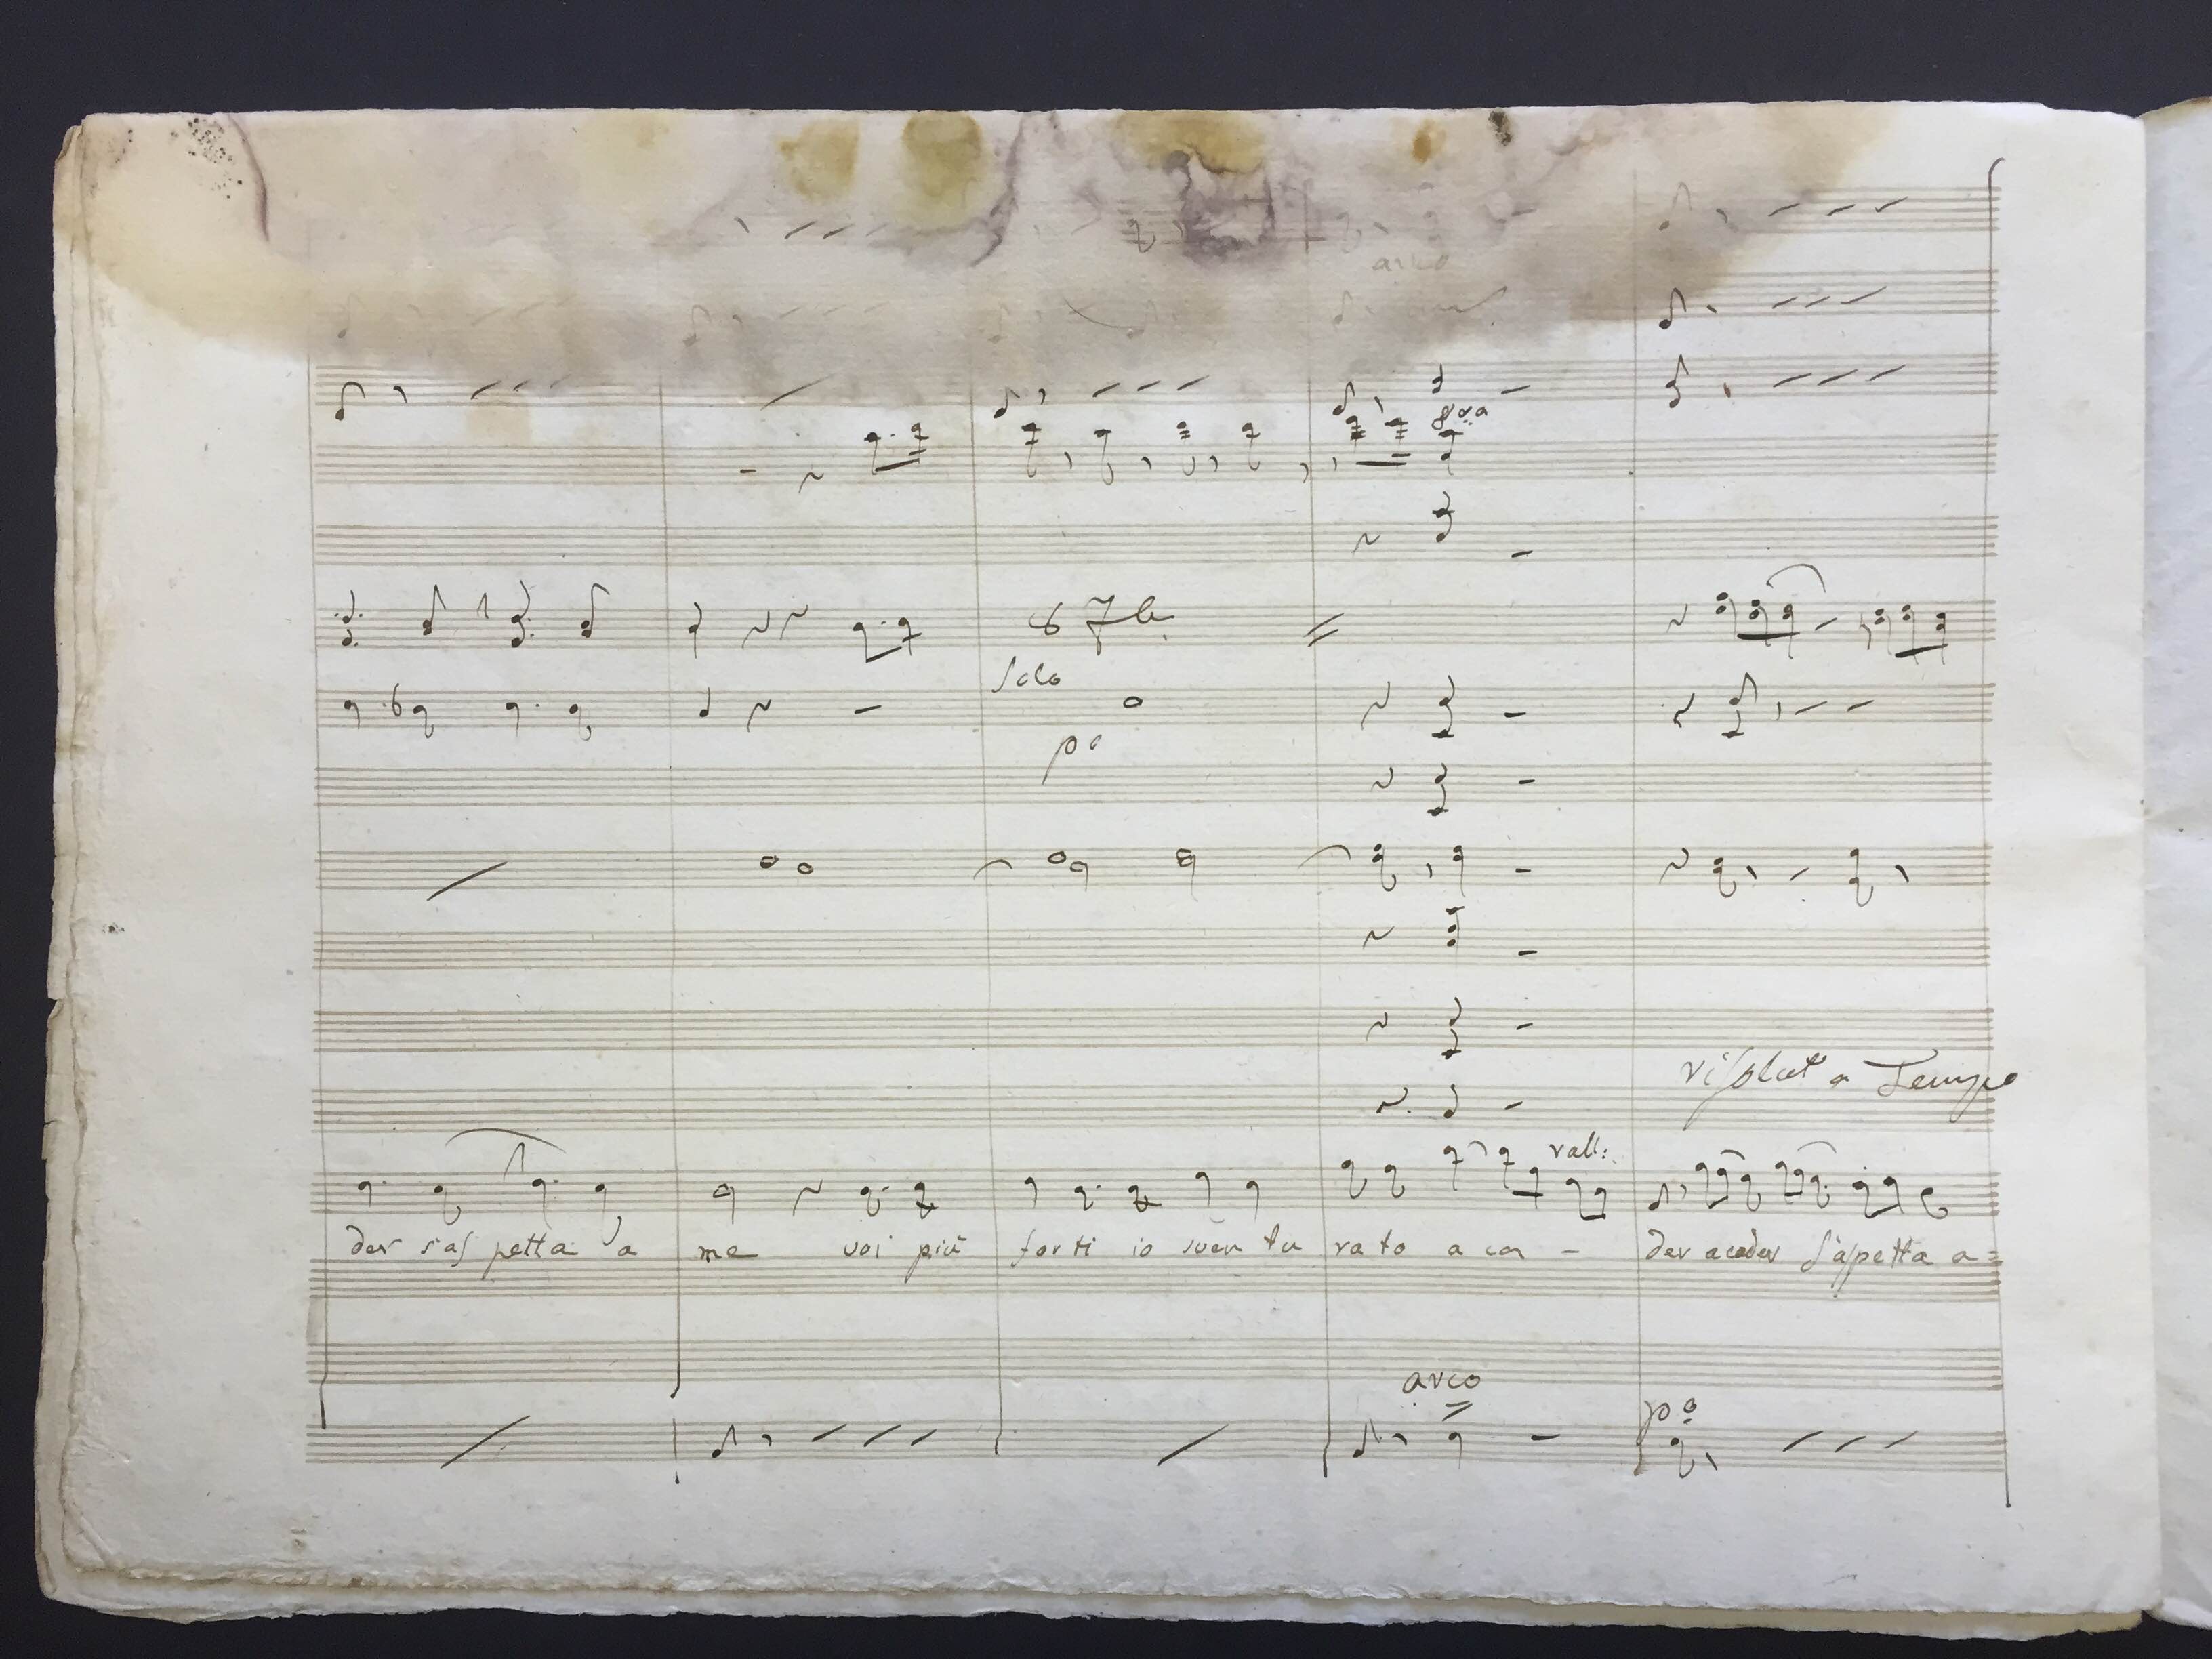 arco
8va
Solo
po
risolut a Tempo
rall:
der s'as petta a me voi più forti io sven tu ra to a ca - der a cader s'aspetta a=
arco
po